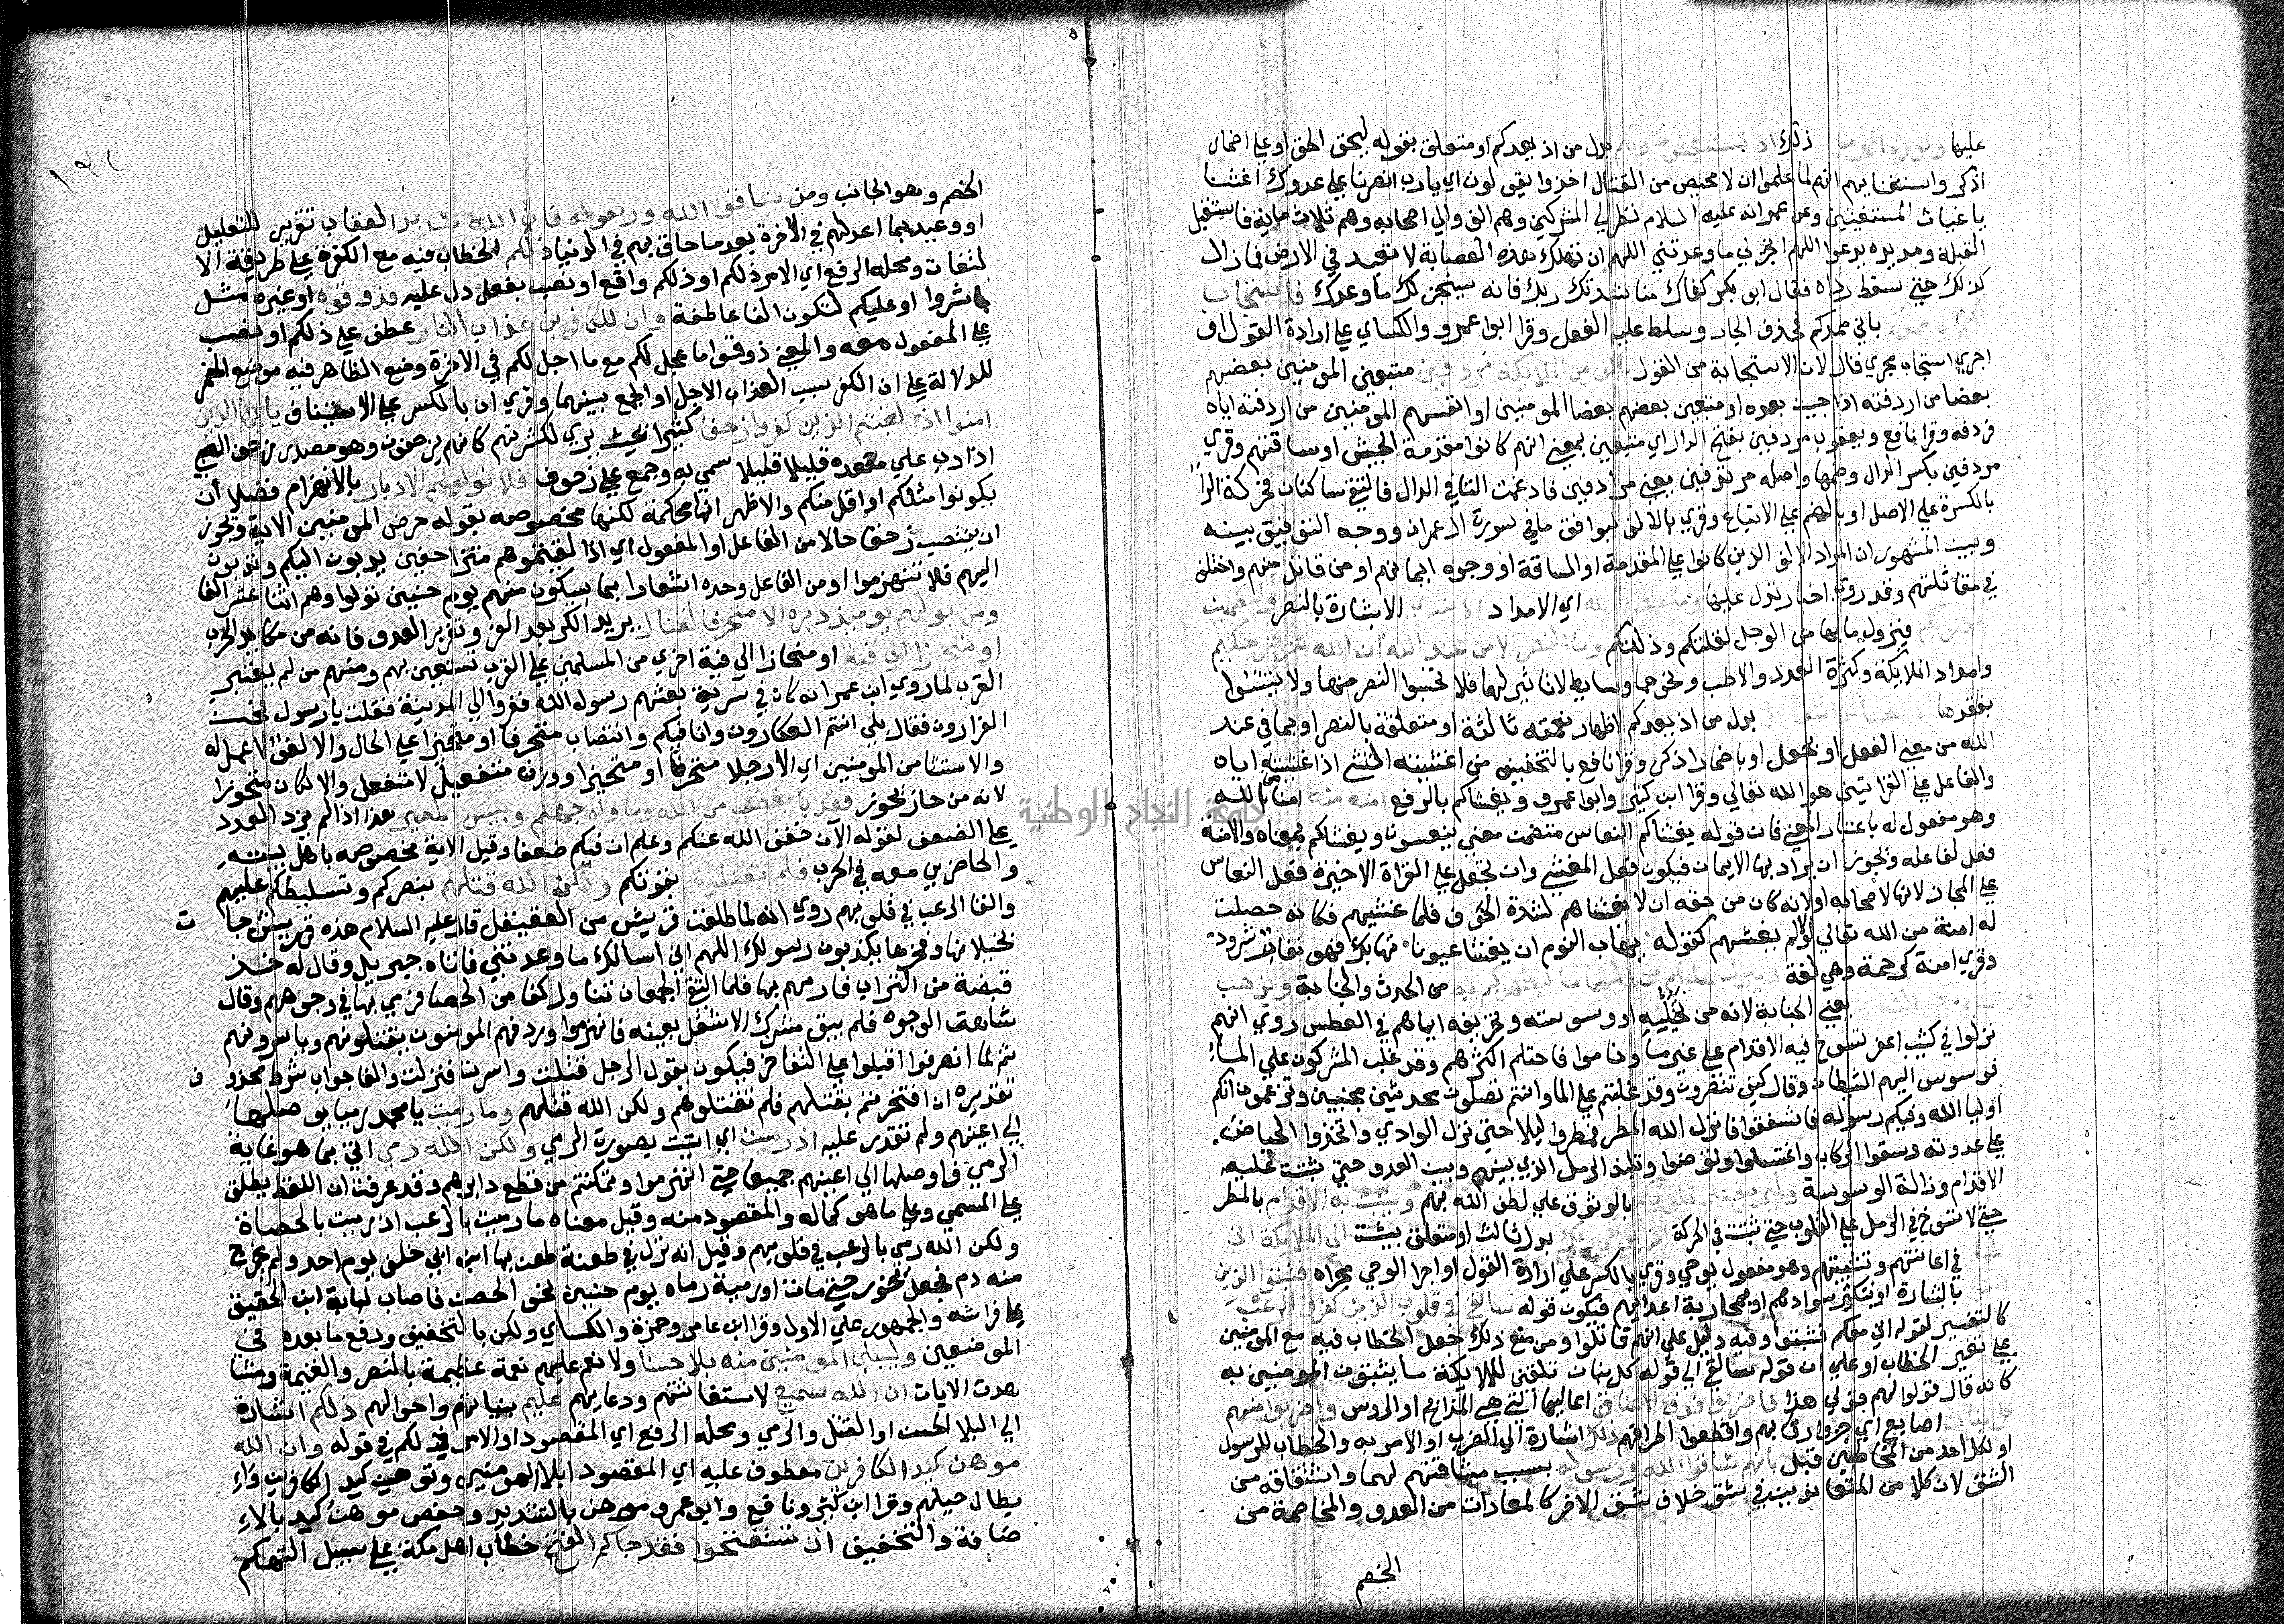 عليها ولوكره المجرمون اذ تستغيثون ربكم بدل من اذ يعدكم او متعلق بقوله ليحق الحق او على اضمار
اذكر واستغاثتهم انهم لما علموا ان لا محيص من القتال اخذوا يقولون اي يا رب انصرنا على عدوك اغثنا
يا غياث المستغيثين وعن عمر انه عليه السلام نظر الي المشركين وهم الف والي اصحابه وهم ثلاث ماية فاستقبل
القبلة ومد يديه يدعوا اللهم انجز لي ما وعدتني اللهم ان تهلك هذه العصابة لا تعبد في الارض فما زال
كذلك حتي سقط رداه فقال ابو بكر كفاك مناشدتك ربك فانه سينجز لك ما وعدك فاستجاب
باني ممدكم فحذف الجار وسلط عليه الفعل وقرا ابوا عمرو والكساي على ارادة القول او
اجري استجاب مجري قال لان الاستجابة من القول بالف من الملايكة مردفين متبعين المومنين بعضهم
بعضا من اردفته اذا جيت بعده او متبعين بعضهم بعضا المومنين او انفسهم المومنين من اردفته اياه
فردفه وقرا نافع ويعقوب مردفين بفتح الدال اي متبعين بمعني انهم كانوا مقدمة الجيش او ساقتهم وقري
مردفين بكسر الرا وضمها واصله مرتدفين بمعني مترادفين فادغمت التا في الدال فالتقي ساكنان فحركة الرا
بالكسرة على الاصل او بالضم على الاتباع وقري بالاف ليوافق ما في سورة ال عمران ووجه التوفيق بينه
وبين المشهور ان المراد بالالف الذين كانوا على المقدمة او الساقة او وجوههم او من قاتل منهم واختلف
في مقاتلتهم وقد روي اخبار تدل عليها وما جعله الله اي الامداد الا بشري الا بشارة بالنصر ولتطمين
فيزول ما بها من الوجل لقلتكم وذلتكم وما النصر الا من عند الله ان الله عزيز حكيم
وامداد الملايكة وكثرة العدد والاهب ونحوهما وسايط لا تاثير لها فلا تحسبوا النصر منها ولا تيئسوا
بفقدها بدل من اذ يعدكم اظهار نعمة ثالثة او متعلقة بالنصر او بما في عند
الله من معني الفعل او بجعل او باضمار اذكر وقرا نافع بالتخفيف من اغشيته الشي اذا غشيته اياه
والفاعل على القراتين هو الله تعالي وقرا ابن كثير وابوا عمرو ويغشاكم بالرفع امنة منه امنا من الله
وهو مفعول له باعتبار المعني فان قوله يغشيكم النعاس متضمن معني تنعسون ويغشاكم بمعناه والامنة
فعل لفاعله ويجوز ان يراد بها الايمان فيكون فعل المغشي وان تجعل على القراة الاخيرة فعل النعاس
على المجاز لانها لاصحابه او لانه كان من حقه ان لا يغشاهم لشدة الخوف فلما غشيهم فكانه حصلت
له امنة من الله تعالي لولاها لم يغشهم كقوله يهاب النوم ان يغشا عيونا تهابك فهو نفار شرود
وقري امنة كرحمة وهي لغة وينزل عليكم من السما ما ليطهركم به من الحدث والجنابة ويذهب
يعني الجنابة لانه من تخييله او وسوسته وتخويفه اياهم في العطش روي انهم
نزلوا في كثيب اعفر تسوخ فيه الاقدام على غير ما وناموا فاحتلم اكثرهم وقد غلب المشركون علي الماء
فوسوس اليهم الشيطان وقال كيف تنصرون وقد غلبتم على الما وانتم تصلون محدثين مجنبين وتزعمون انكم
اوليا الله وفيكم رسوله فاشفقوا فانزل الله المطر فمطروا ليلا حتي نزل الوادي واتخذوا الحياض
على عدوته وسقوا الركاب واغتسلوا وتوضوا وتلبد الرمل الذي بينهم وبين العدو حتي ثبتت عليه
الاقدام وزالة الوسوسة وليربط على قلوبكم بالوثوق علي لطف الله بهم ويثبت به الاقدام بالمطر
حتي لا تسوخ في الرمل على القلوب حتي تثبت في المعركة اذ يوحي ربك بدل ثالث او متعلق بيثبت الي الملايكة اني
في اعانتهم وتثبيتهم وهو مفعول يوحي وقري بالكسر علي ارادة القول او اجرا الوحي مجراه فثبتوا الذين
بالبشارة او بتكثير سوادهم او بمحاربة اعدايهم فيكون قوله سالقي في قلوب الذين كفروا الرعب
كالتفسير لقوله اني معكم فثبتوا وفيه دليل علي انهم قاتلوا ومن منع ذلك جعل الخطاب فيه مع المومنين
على تغير الخطاب او علي ان قوله سالقي الي قوله كل بنان تلقين للملايكة ما يثبتون المومنين به
كانه قال قولوا لهم قولي هذا فاضربوا فوق الاعناق اعاليها التي هي المذابح او الروس واضربوا منهم
كل بنان اصابع اي جزوا رقابهم واقطعوا اطرافهم ذلك اشارة الي الضرب او الامر به والخطاب للرسول
او لكل احد من المخاطبين قبل بانهم شاقوا الله ورسوله بسبب مشاقتهم لهما واشتقاقه من
الشق لان كلا من المتعاديين في شق خلاف شق الاخر كالمعادات من العدو والمخاصمة من
الخصم
الخصم وهو الجانب ومن يشاقق الله ورسوله فان الله شديد العقاب تقرير للتعليل
او وعيد بما اعد لهم في الاخرة بعد ما حاق بهم في الدنيا ذلكم الخطاب فيه مع الكفرة على طريقة الا
لتفات ومحله الرفع اي الامر ذلكم او ذلكم واقع او نصب بفعل دل عليه فذوقوه او غيره مثل
باشروا او عليكم لتكون الفا عاطفة وان للكافرين عذاب النار عطف علي ذلكم او نصب
على المفعول معه والمعني ذوقوا ما عجل لكم مع ما اجل لكم في الاخرة ووضع الظاهر فيه موضع المضمر
للدلالة على ان الكفر سبب العذاب الاجل او الجمع بينهما وقري ان بالكسر على الاستيناف يا ايها الذين
امنوا اذا لقيتم الذين كفروا زحفا كثيرا بحيث يري لكثرتهم كانهم يزحفون وهو مصدر زحف الصبي
اذا دب علي مقعده قليلا قليلا سمي به وجمع على زحوف فلا تولوهم الادبار بالانهزام فضلا ان
يكونوا مثلكم او اقل منكم والاظهر انها محكمة لكنها مخصوصه بقوله حرض المومنين الاية ويجوز
ان ينتصب زحفا حالا من الفاعل او المفعول اي اذا لقيتموهم متزاحفين يدبون اليكم وتدبون
اليهم فلا تنهزموا او من الفاعل وحده اشعارا بما سيكون منهم يوم حنين تولوا وهم اثنا عشر الفا
ومن يولهم يوميذ دبره الا متحرفا لقتال يريد الكر بعد الفر وتغرير العدو فانه من مكايد الحرب
او متحيزا الي فية او منحازا الي فية اخري من المسلمين على القرب تستعين بهم ومنهم من لم يعتبر
القرب لما روي ابن عمر انه كان في سرية بعثهم رسول الله ففروا الي المدينة فقلت يا رسول نحن
الفرارون فقال بلي انتم العكارون وانا فيكم وانتصاب متحرفا او متحيزا على الحال والا لغو لا عمل له
والاستثنا من المومنين اي الا رجلا متحرفا او متحيزا ووزن متفيعل لا متفعل والا لكان متحوزا
لانه من حاز يحوز فقد با بغضب من الله وماواه جهنم وبيس المصير هذا اذا لم يزد العدد
على الضعف لقوله الان خفف الله عنكم وعلم ان فيكم ضعفا وقيل الاية مخصوصه باهل بيته
والحاضرين معه في الحرب فلم تقتلوهم بقوتكم ولكن الله قتلهم بنصركم وتسليطكم عليهم
والقا الرعب في قلوبهم روي انه لما طلعت قريش من العقنقل قال عليه السلام هذه قريش جا
ت
بخيلايها وفخرها يكذبون رسولك اللهم اني اسالك ما وعدتني فاتاه جبريل وقال له خذ
قبضة من التراب فارمهم بها فلما التقي الجمعان تناول كفا من الحصا فرمي بها في وجوههم وقال
شاهت الوجوه فلم يبق مشرك الا شغل بعينه فانهزموا وردفهم المومنون يقتلونهم وياسرونهم
ثم لما انصرفوا اقبلوا على التفاخر فيكون يقول الرجل قتلت واسرت فنزلت والفا جواب شرط محذو
ف
تقديره ان افتخرتم بقتلهم فلم تقتلوهم ولكن الله قتلهم وما رميت يا محمد رميا يوصلها
الي اعينهم ولم تقدر عليه اذ رميت اي اتيت بصورة الرمي ولكن الله رمي اتي بما هو غاية
الرمي فاوصلها الي اعينهم جميعا حتي انهزموا وتمكنتم من قطع دابرهم وقد عرفت ان اللفظ يطلق
على المسمي وعلي ما هو كماله والمقصود منه وقيل معناه ما رميت بالرعب اذ رميت بالحصاة
ولكن الله رمي بالرعب في قلوبهم وقيل انه نزل في طعنة طعن بها ابي ابن خلف يوم احد ولم يخرج
منه دم فجعل يخور حتي مات او رمية رماه يوم حنين نحو الحصن فاصاب لبابة ابن الحقيق
على فراشه والجمهور علي الاول وقرا ابن عامر وحمزة والكساي ولكن بالتخفيف ورفع ما بعده في
الموضعين وليبلي المومنين منه بلا حسنا ولانعم عليهم نعمة عظيمة بالنصر والغنيمة ومشا
هدت الايات ان الله سميع لاستغاثتهم ودعايهم عليم بنياتهم واحوالهم ذلكم اشارة
الي البلا الحسن او القتل والرمي ومحله الرفع اي المقصود او الامر ذلكم في قوله وان الله
موهن كيد الكافرين معطوف عليه اي المقصود ابلا المومنين وتوهين كيد الكافرين وا
بطال حيلهم وقرا ابن كثير ونافع وابو عمرو موهن بالتشديد وحفص موهن كيد بالا
ضافة والتخفيف ان تستفتحوا فقد جاكم الفتح خطاب اهل مكة على سبيل التهكم
جامعة النجاح الوطنية